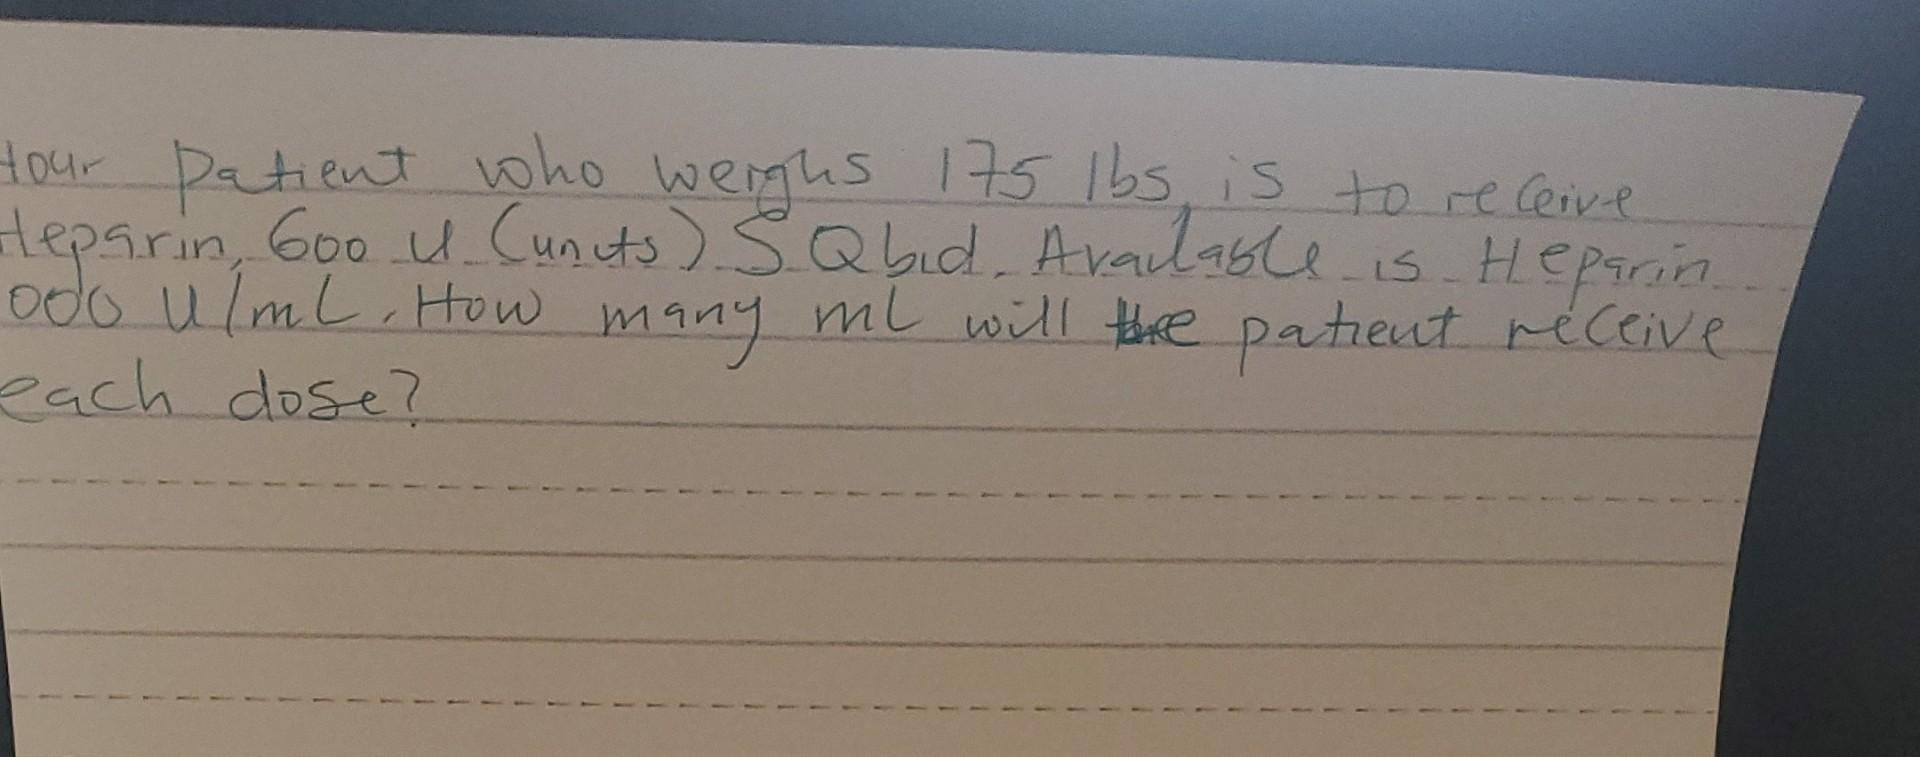 Your patient who weighs 175 lbs, is to receive
Heparin, 600 U (units) SQ bid. Available is Heparin
000 U/mL. How many mL will the patient receive
each dose?